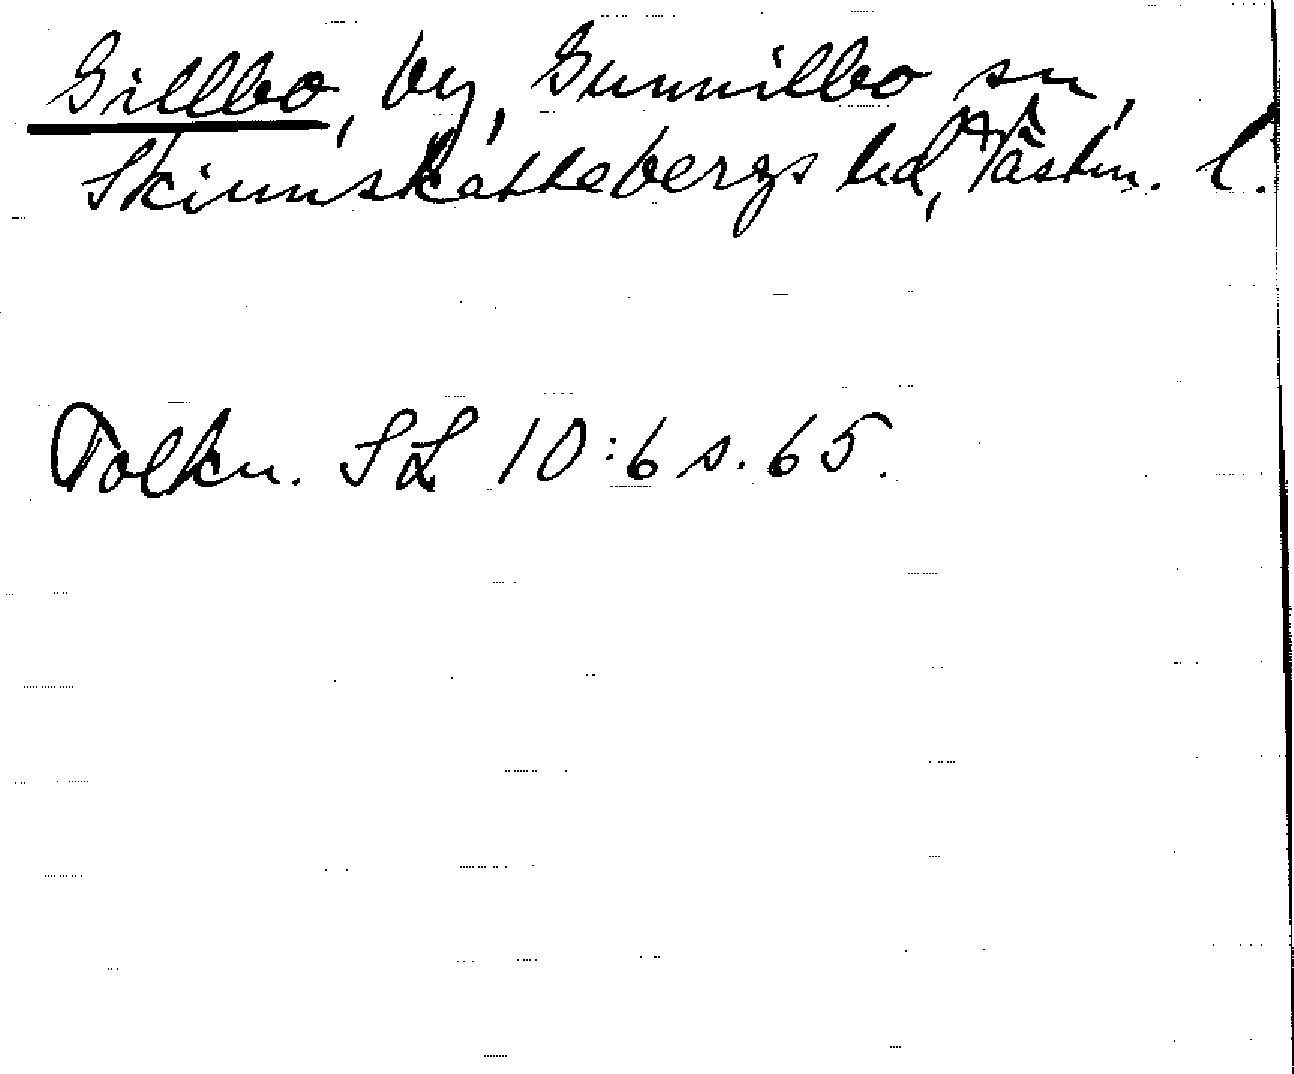 Gillbo, by, Gunnilbo sn,
Skinnskattebergs hd, Västm. l.
Tolkn. SL 10:6 s. 65.